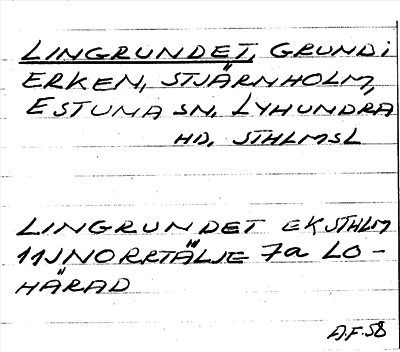 LINGRUNDET, GRUND i
ERKEN, STJÄRNHOLM,
ESTUNA SN, LYHUNDRA
HD, STHLMSL
LINGRUNDET EK STHLM
11J NORRTÄLJE 7a LO-
HÄRAD
A.F. 58